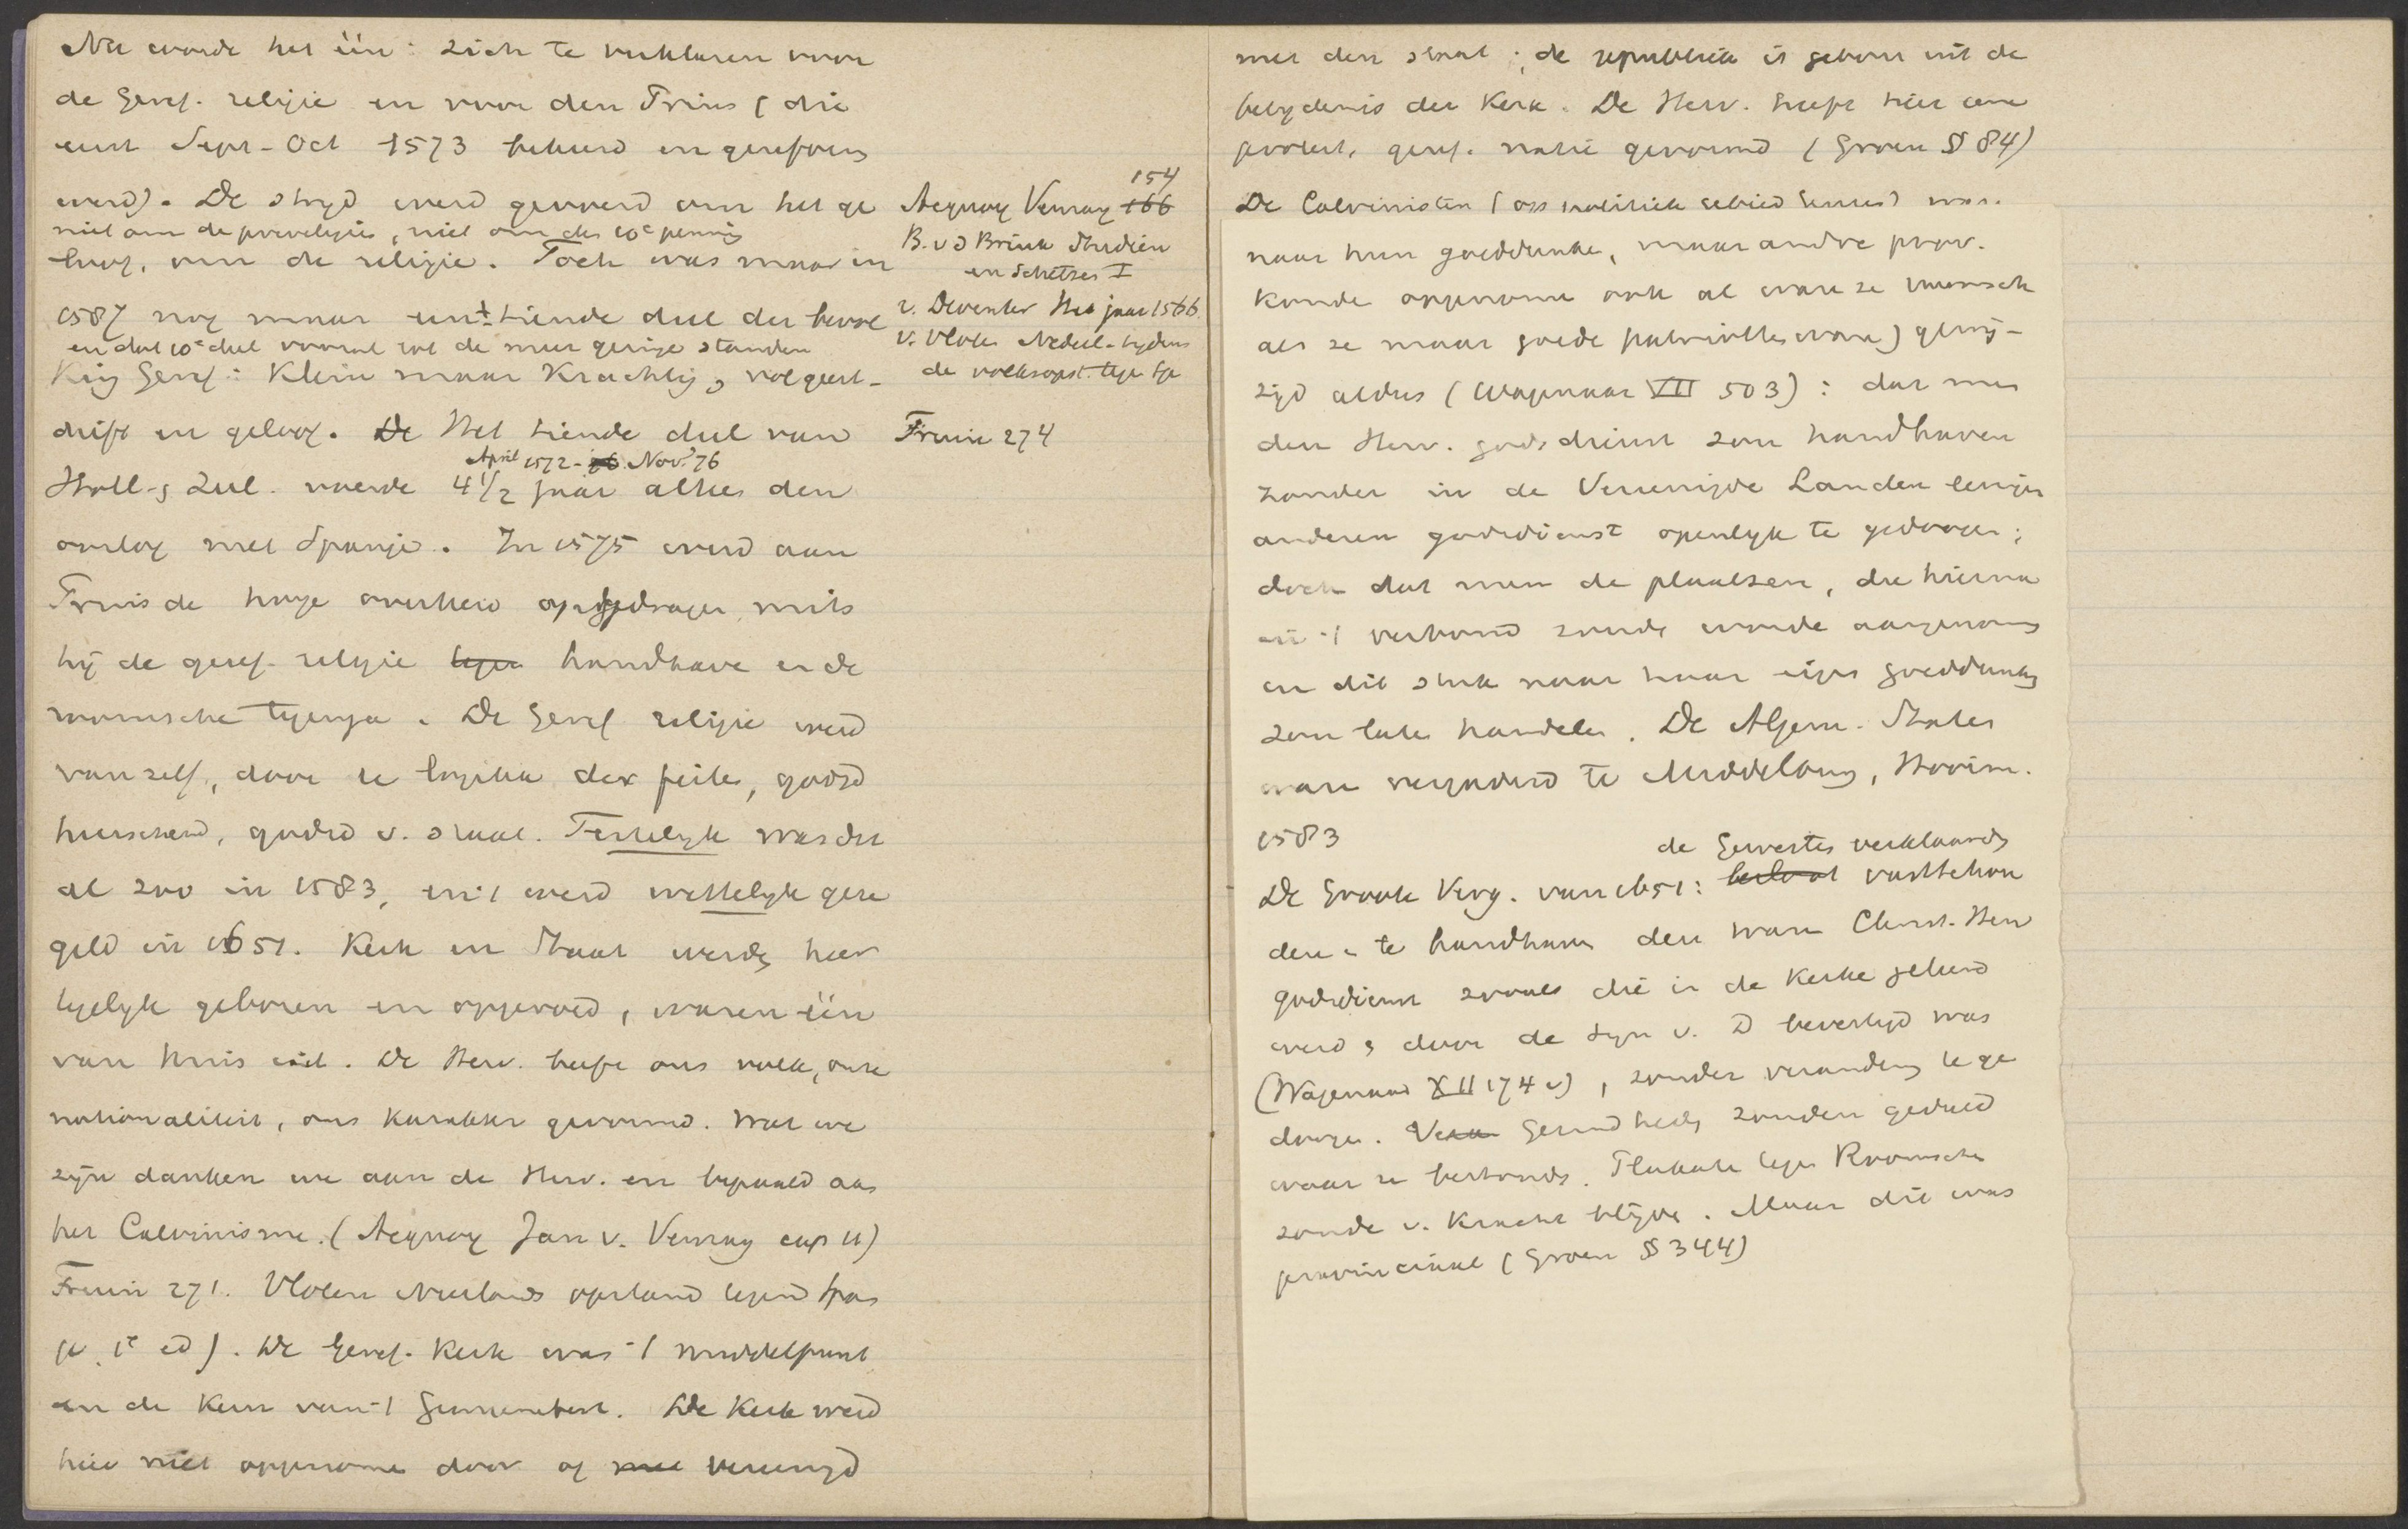 Nu werde het één: zich te verklaren voor
de Geref. religie en voor den Prins (die
eerst Sept-Oct 1573 bekeerd en gereform
werd). De strijd werd gevoerd om het ge
niet om de privelegiës, niet om den 10e penning
loof, om de religie. Toch was maar in
1587 nog maar een ± tiende deel der bevol
en dat 10e deel vooral uit de meer geringe standen
king Geref: Klein maar Krachtig, vol geest-
drift en geloof. De Het tiende deel van
April 1572 - 76 Nov. 76
Holl. & Zeel. voerde 4 1/2 jaar alleen den
oorlog met Spanje. In 1575 werd aan
Prins de hooge overheid opgedragen, mits
hij de geref. religie tegen handhave en de
roomsche tegenga. De Geref religie werd
vanzelf, door de logika der feiten, godsd
heerschend, godsd v. staat. Feitelijk was der
al zoo in 1583, en 't werd wettelijk gere
geld in 1651. Kerk en Staat werden hier
tegelijk geboren en opgevoed, waren één
van huis uit. De Herv. heeft ons volk, onze
nationaliteit, ons karakter gevormd. Wat we
zijn danken we aan de Herv. en bepaald aan
het Calvinisme. (Acquoy Jan v. Venray cap 11)
Fruin 271. Vloten Neerlands opstand tegend Span
je 1e ed). De Geref. Kerk was 't middelpunt
en de Kern van 't Gemeenebest. De Kerk werd
hier niet opgenomen door of met vereenigd
154
Acquoy Venray 166
B. v d Brink Studien
en Schetsen I
v. Deventer Het jaar 1566
v. Vloten Nederl. tijdens
de volksopst. tegen Spe
Fruin 274
met den staat; de republiek is geboren uit de
belydenis der Kerk. De Herv. heeft hier eene
protest. geref. natie gevormd (Groen § 84)
De Calvinisten (op politiek gebied Geuses) war.
naar hun goeddunke, maar andre prov.
konde opgenome ook al ware ze roomsch
als ze maar goede patriotten ware) gewij-
zigd aldus (Wagenaar VII 503): dat men
den Herv. godsdienst zou handhaven
zonder in de Vereenigde Landen eenigen
anderen godsdienst openlyk te gedoogen;
doch dat men de plaatsen, die hierna
in 't verbond zoude worde aangenomen
in dit stuk naar haar eigen goeddunken
zou laten handelen. De Algem. Staten
ware vergaderd te Middelburg, Hooim.
1583
de Gewesten verklaarden
De Groote Verg. van 1651: besloot vasttehou
den & te handhaven den ware Christ. Herv
godsdienst zooals die in de Kerke geleerd
werd & door de Syn v. D bevestigd was
(Wagenaar XII 174 v), zonder verandering te ge
doogen. Gezindheden zouden geduld
waar ze bestonden. Plakate tegen Roomschen
zoude v. Kracht blijve. Maar dit was
provinciaal (Groen § 344)